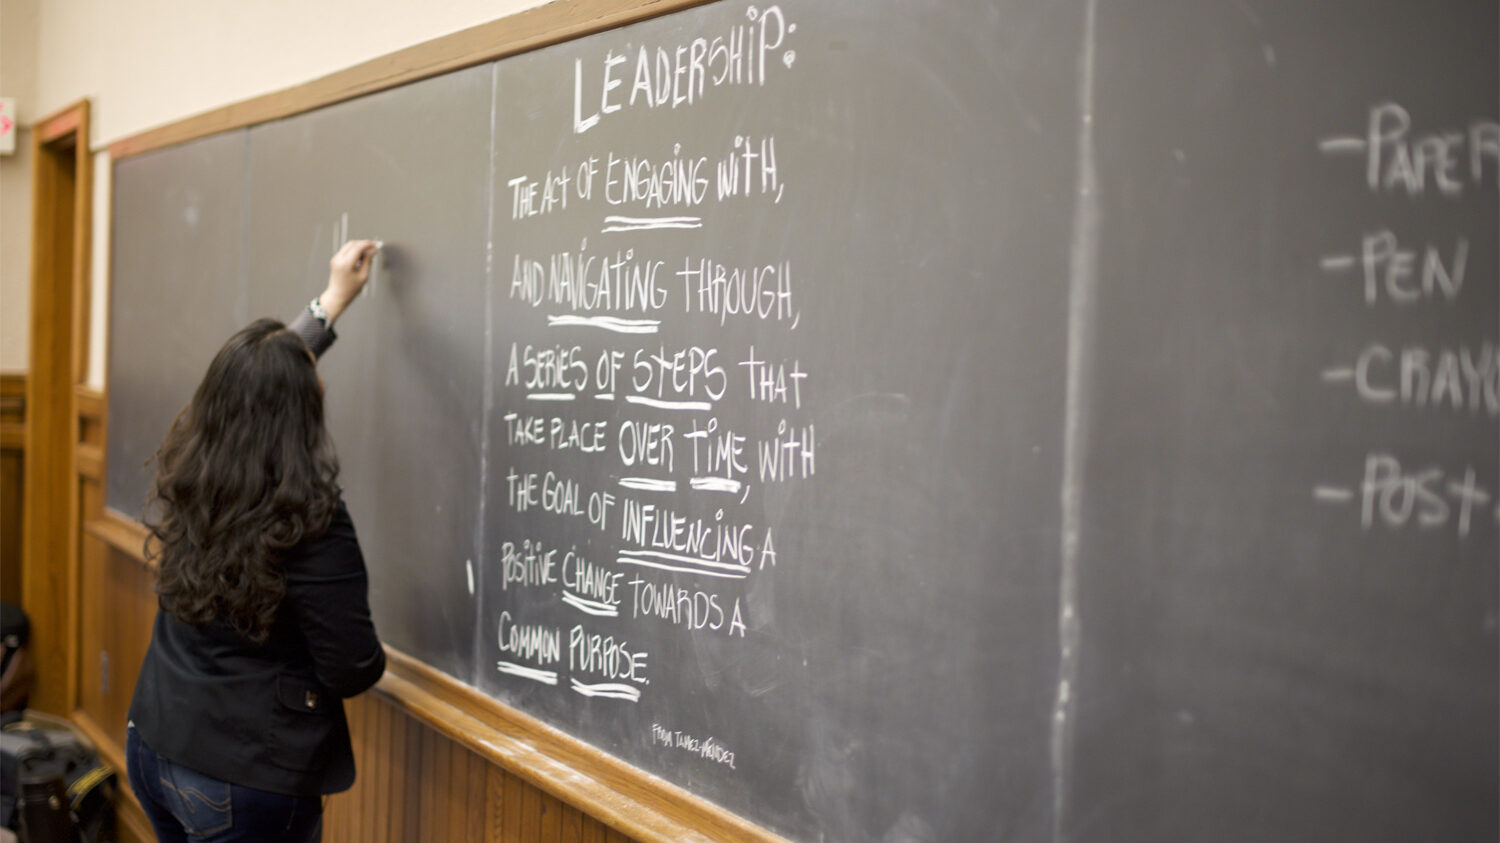 LEADERSHIP:
THE ACT OF ENGAGING WITH,
AND NAVIGATING THROUGH,
A SERIES OF STEPS THAT
TAKE PLACE OVER TIME, WITH
THE GOAL OF INFLUENCING A
POSITIVE CHANGE TOWARDS A
COMMON PURPOSE.
TAMEZ-MÉNDEZ
-PAPER
-PEN
-CRAYO
-POST-